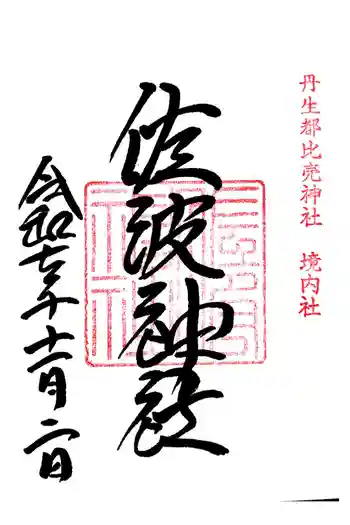 丹生都比売神社 境内社
佐波神社
令和七年十一月二日